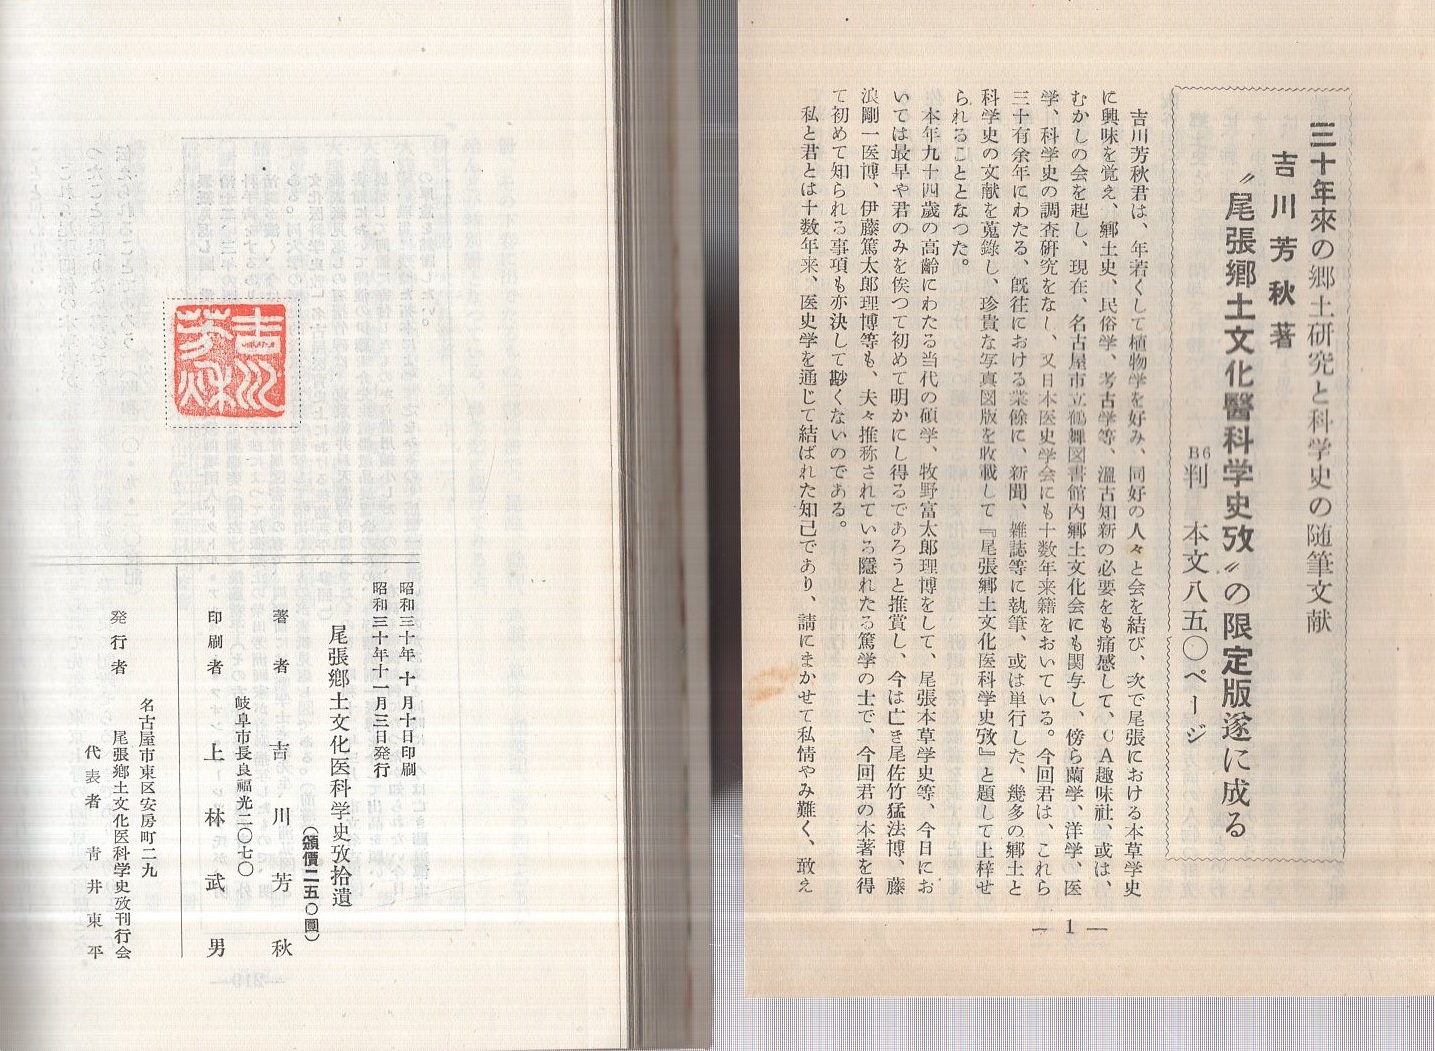 三十年來の郷土研究と科学史の随筆文献
吉川芳秋著
〝尾張郷土文化醫科学史攷〟の限定版遂に成る
B6判　本文八五〇ページ
吉川芳秋君は、年若くして植物学を好み、同好の人々と会を結び、次で尾張における本草学史
に興味を覚え、郷土史、民俗学、考古学等、溫古知新の必要をも痛感して、CA趣味社、或は、
むかしの会を起し、現在、名古屋市立鶴舞図書館内郷土文化会にも関与し、傍ら蘭学、洋学、医
学、科学史の調査研究をなし、又日本医史学会にも十数年来籍をおいている。今回君は、これら
三十有余年にわたる、既往における業餘に、新聞、雑誌等に執筆、或は単行した、幾多の郷土と
科学史の文献を蒐錄し、珍貴な写真図版を收載して『尾張郷土文化医科学史攷』と題して上梓せ
られることとなつた。
本年九十四歳の高齢にわたる当代の碩学、牧野富太郎理博をして、尾張本草学史等、今日にお
いては最早や君のみを俟つて初めて明かにし得るであろうと推賞し、今は亡き尾佐竹猛法博、藤
浪剛一医博、伊藤篤太郎理博等も、夫々推称されている隠れたる篤学の士で、今回君の本著を得
て初めて知られる事項も亦決して尠くないのである。
私と君とは十数年来、医史学を通じて結ばれた知己であり、請にまかせて私情やみ難く、敢え
— 1 —
吉川芳秋
昭和三十年十月十日印刷
昭和三十年十一月三日発行
尾張郷土文化医科学史攷拾遺
（頒價二五〇圓）
著者　吉川芳秋
岐阜市長良福光二〇七〇
印刷者　上林武男
名古屋市東区安房町二九
発行者　尾張郷土文化医科学史攷刊行会
代表者　青井東平